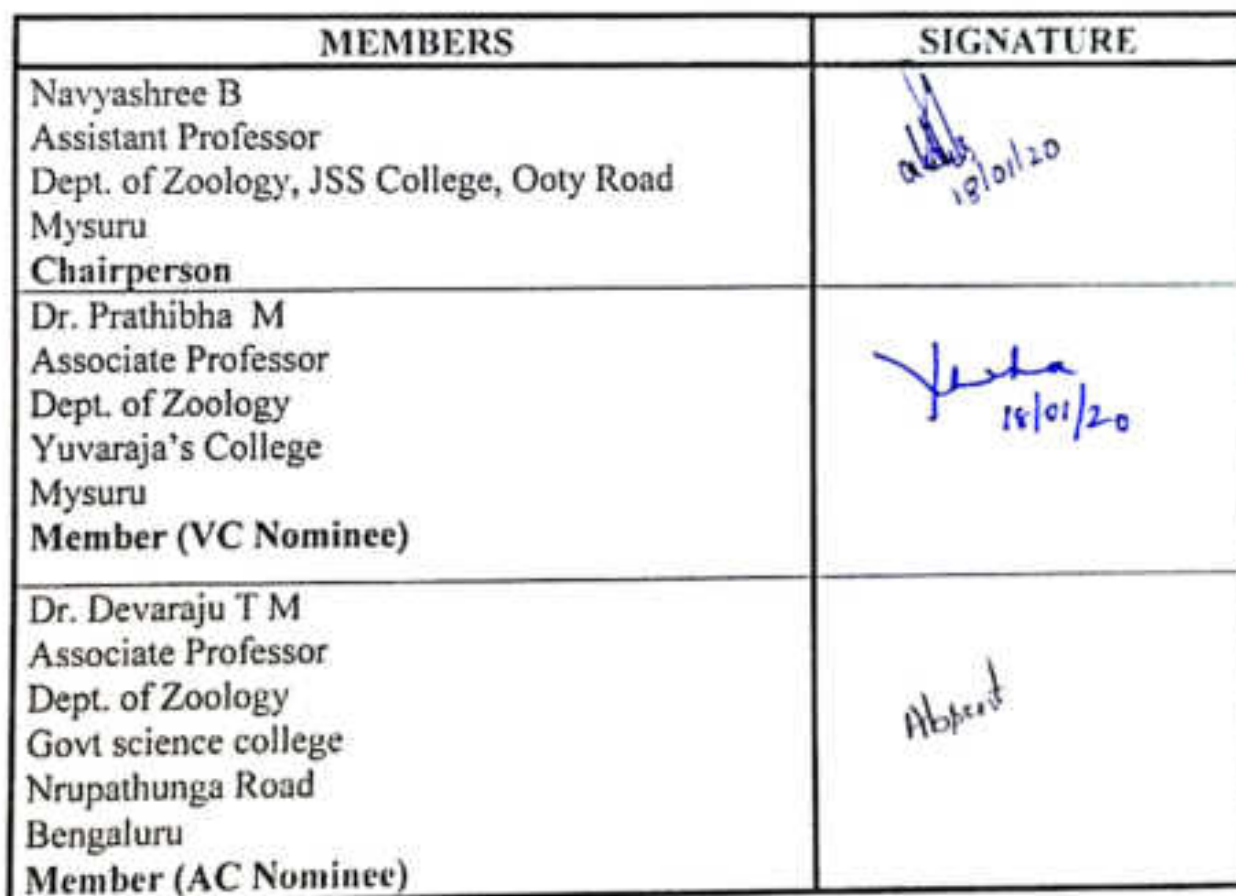 MEMBERS SIGNATURE
Navyashree B
Assistant Professor
Dept. of Zoology, JSS College, Ooty Road
Mysuru
Chairperson
18/01/20
Dr. Prathibha M
Associate Professor
Dept. of Zoology
Yuvaraja's College
Mysuru
Member (VC Nominee)
18/01/20
Dr. Devaraju T M
Associate Professor
Dept. of Zoology
Govt science college
Nrupathunga Road
Bengaluru
Member (AC Nominee)
Absent